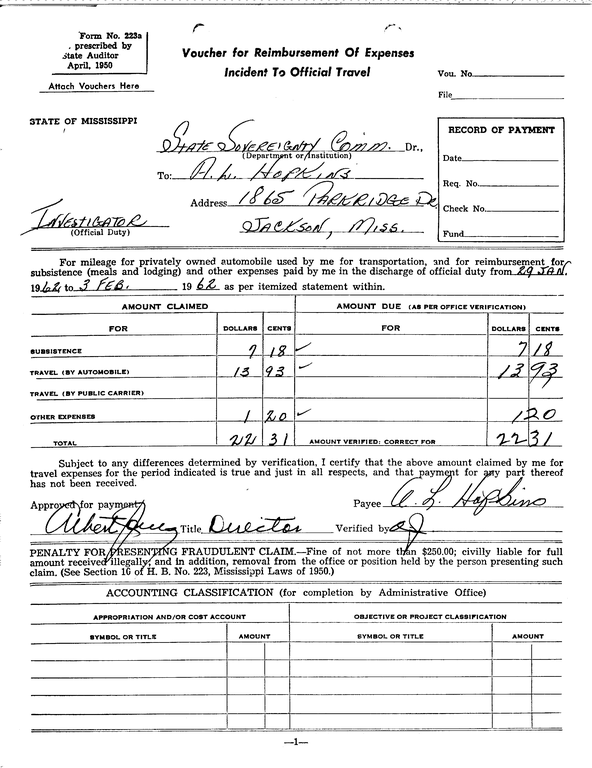 Form No. 223a
prescribed by
State Auditor
April, 1950
Attach Vouchers Here
Voucher for Reimbursement Of Expenses
Incident To Official Travel
Vou. No.
File
STATE OF MISSISSIPPI
State Sovereignty Comm. Dr.,
(Department or Institution)
To: A. L. Hopkins
Address 1865 Parkridge Dr
Investigator
(Official Duty)
Jackson, Miss.
RECORD OF PAYMENT
Date
Req. No.
Check No.
Fund
For mileage for privately owned automobile used by me for transportation, and for reimbursement for
subsistence (meals and lodging) and other expenses paid by me in the discharge of official duty from 29 Jan.
1962 to 3 Feb. 1962 as per itemized statement within.
AMOUNT CLAIMED AMOUNT DUE (AS PER OFFICE VERIFICATION)
FOR DOLLARS CENTS FOR DOLLARS CENTS
SUBSISTENCE 7 18 ✓ 7 18
TRAVEL (BY AUTOMOBILE) 13 93 ✓ 13 93
TRAVEL (BY PUBLIC CARRIER)
OTHER EXPENSES 1 20 ✓ 1 20
TOTAL 22 31 AMOUNT VERIFIED: CORRECT FOR 22 31
Subject to any differences determined by verification, I certify that the above amount claimed by me for
travel expenses for the period indicated is true and just in all respects, and that payment for any part thereof
has not been received.
Approved for payment Payee A. L. Hopkins
Albert Jones Title Director Verified by
PENALTY FOR PRESENTING FRAUDULENT CLAIM.—Fine of not more than $250.00; civilly liable for full
amount received illegally; and in addition, removal from the office or position held by the person presenting such
claim. (See Section 16 of H. B. No. 223, Mississippi Laws of 1950.)
ACCOUNTING CLASSIFICATION (for completion by Administrative Office)
APPROPRIATION AND/OR COST ACCOUNT OBJECTIVE OR PROJECT CLASSIFICATION
SYMBOL OR TITLE AMOUNT SYMBOL OR TITLE AMOUNT
—1—